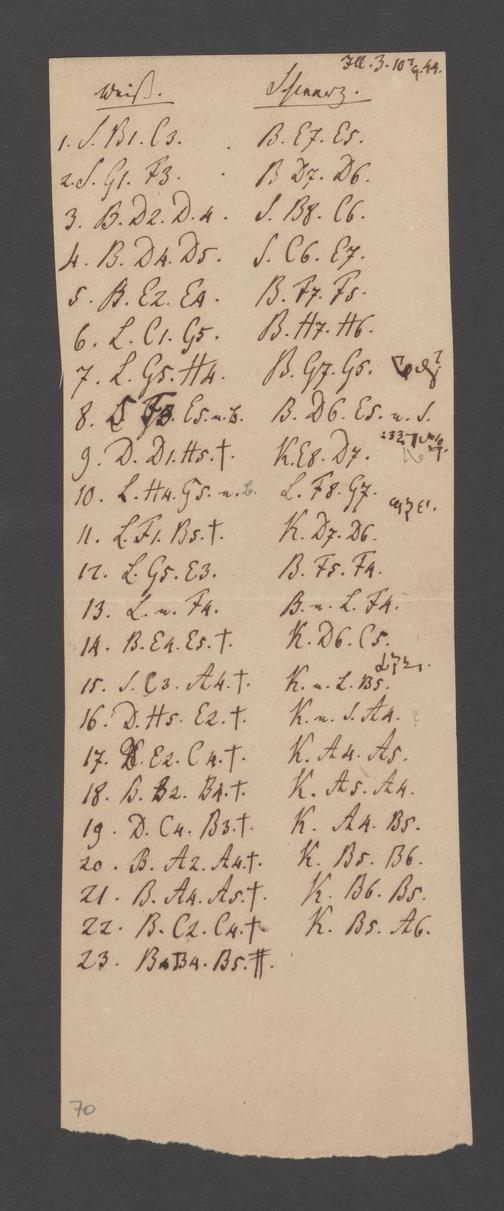 Ill. 3. 10 9. 44.
Weiß. Schwarz.
1. S. B1. C3. B. E7. E5.
2. S. G1. F3. B D7. D6.
3. B. D2. D. 4. S. B8. C6.
4. B. D4. D5. S. C6. E7.
5. B. E2. E4. B. F7. F5.
6. L. C1. G5. B. H7. H6.
7. L. G5. H4. B. G7. G5.
8. S F3. E5. n. B. B. D6. E5. n. S.
9. D. D1. H5. †. K. E8. D7.
10. L. H4. G5. n. B. L. F8. G7.
11. L. F1. B5. †. K. D7. D6.
12. L. G5. E3. B. F5. F4.
13. L. n. F4. B. n. L. F4.
14. B. E4. E5. †. K. D6. C5.
15. S. C3. A4. †. K. n. L. B5.
16. D. H5. E2. †. K. n. S. A4. ?
17. D. E2. C4. †. K. A4. A5.
18. B. B2. B4. †. K. A5. A4.
19. D. C4. B3. †. K. A4. B5.
20. B. A2. A4. †. K. B5. B6.
21. B. A4. A5. †. K. B6. B5.
22. B. C2. C4. †. K. B5. A6.
23. B. B4. B5. ‡.
70